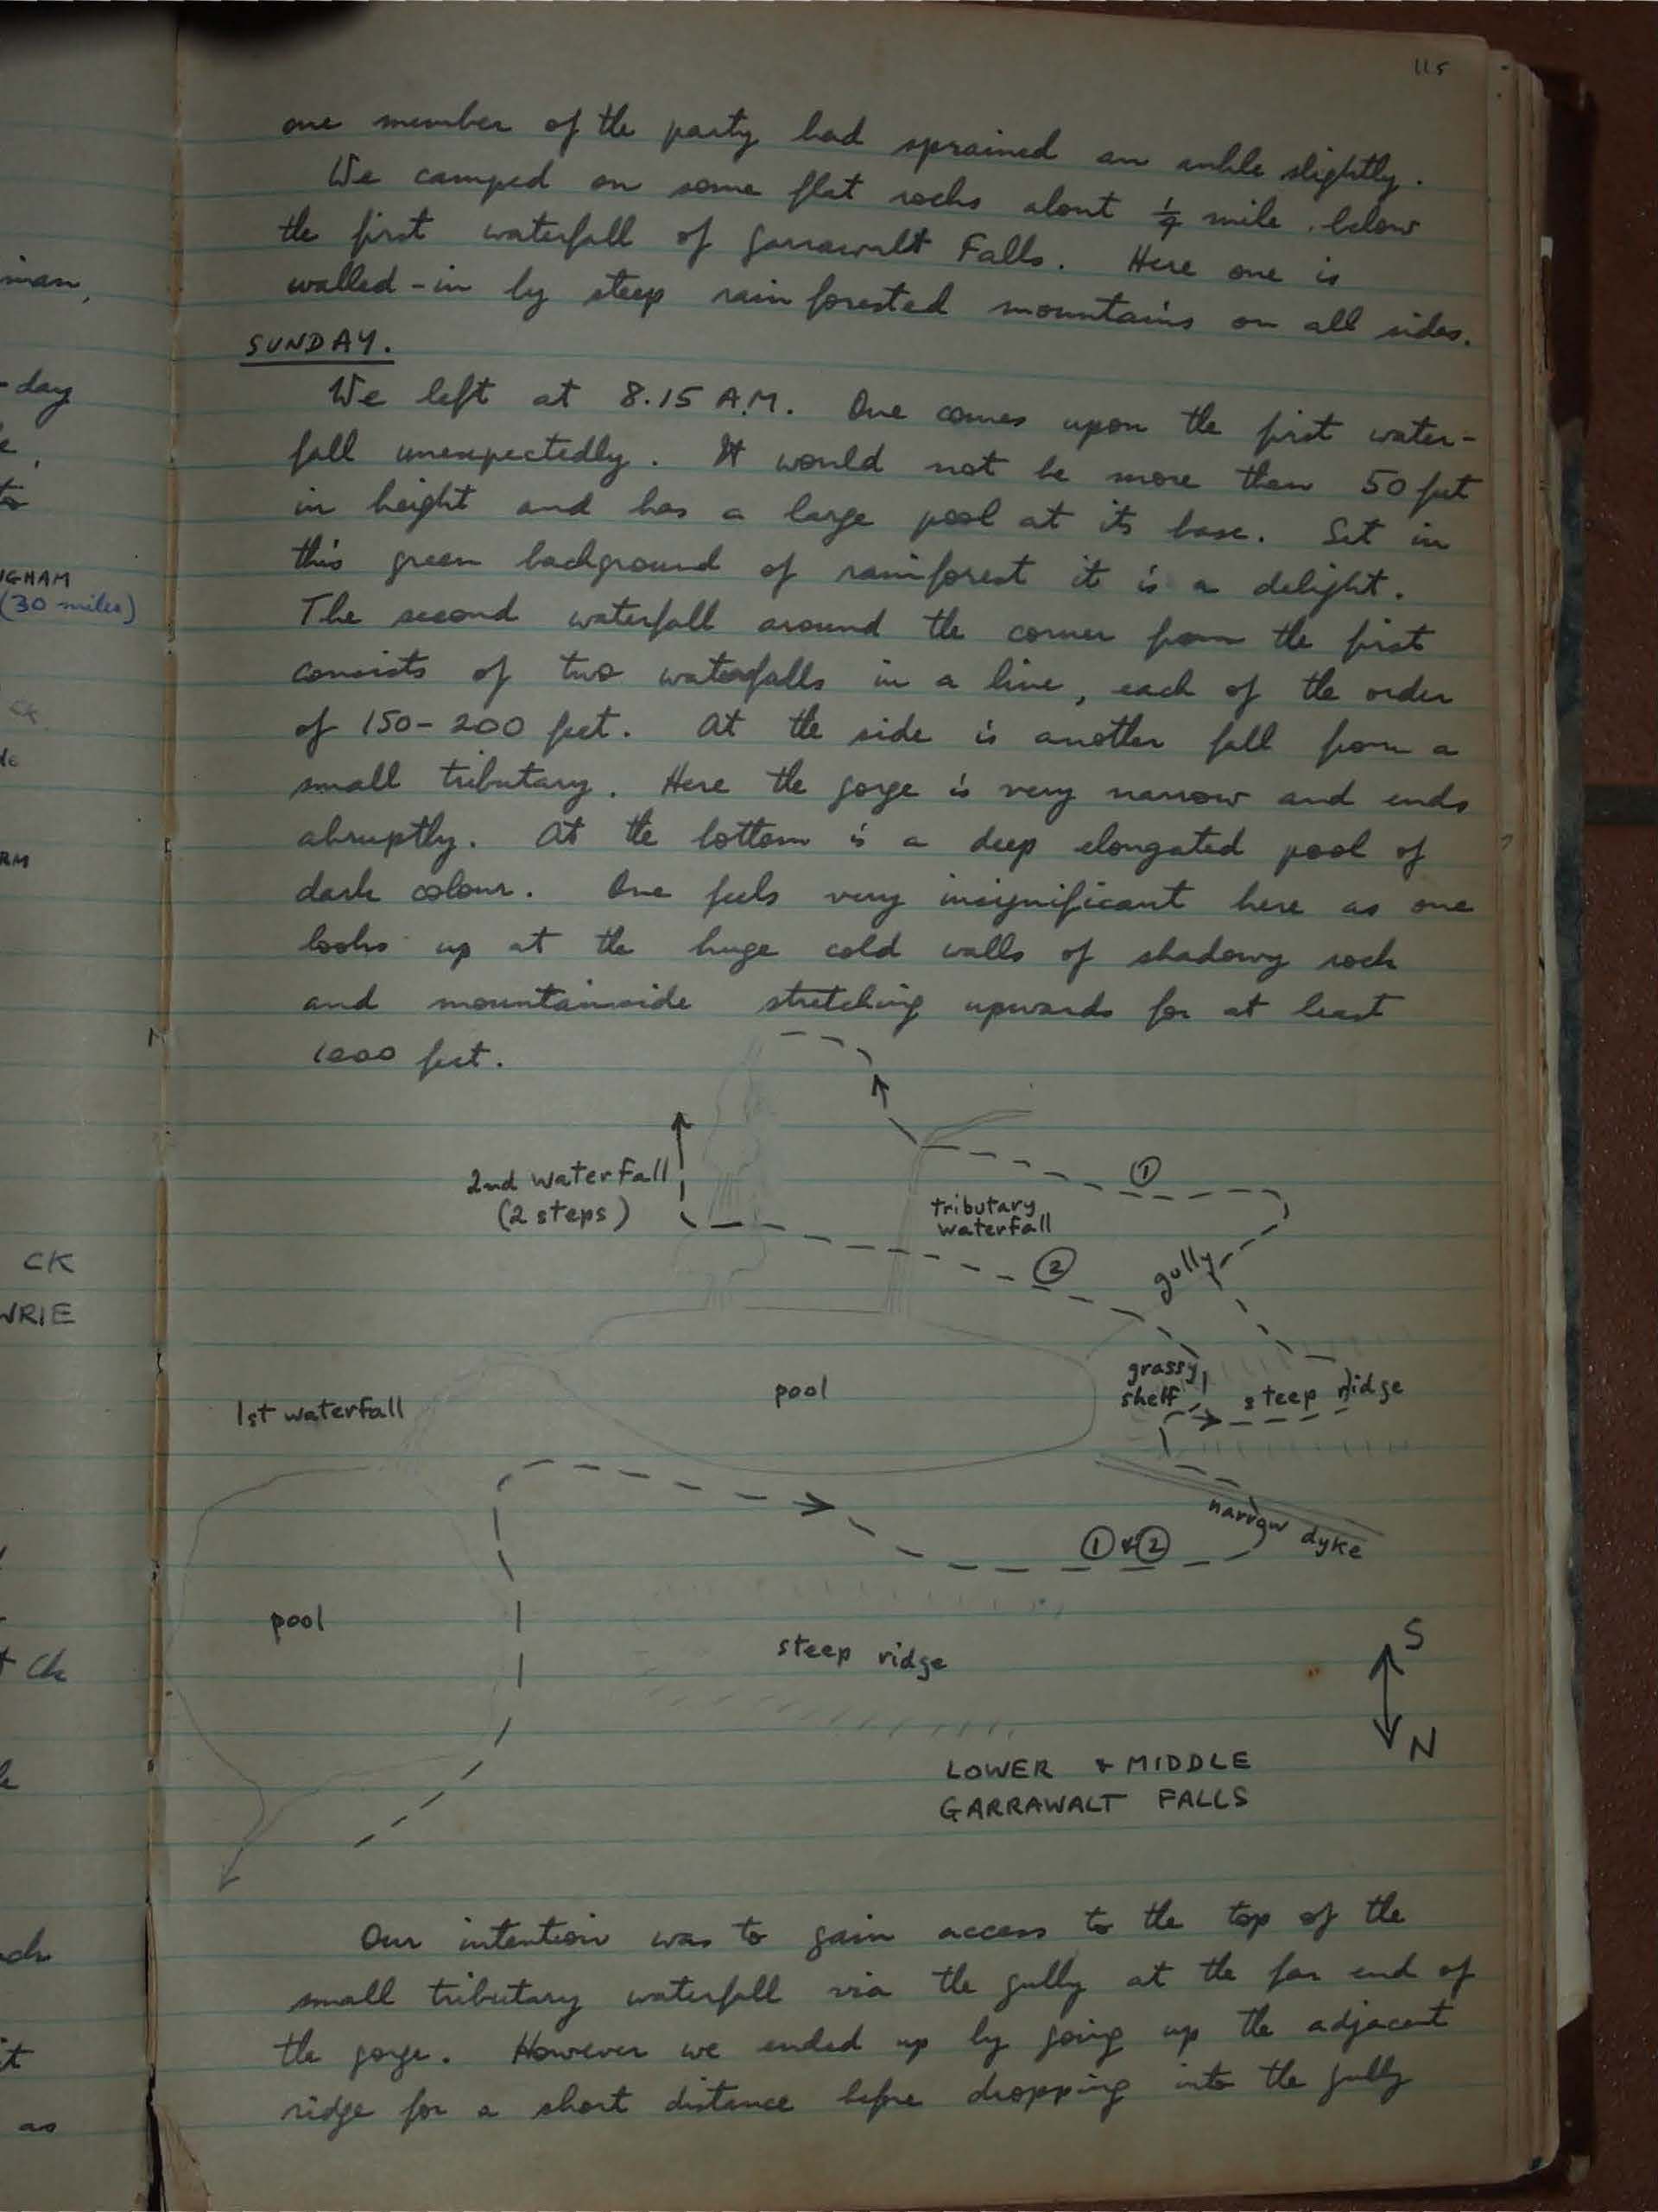 115
one member of the party had sprained an ankle slightly.
We camped on some flat rocks about 1/4 mile below
the first waterfall of Garrawalt Falls. Here one is
walled-in by steep rain forested mountains on all sides.
SUNDAY.
We left at 8.15 A.M. One comes upon the first water-
fall unexpectedly. It would not be more than 50 feet
in height and has a large pool at its base. Set in
this green background of rainforest it is a delight.
The second waterfall around the corner from the first
consists of two waterfalls in a line, each of the order
of 150-200 feet. At the side is another fall from a
small tributary. Here the gorge is very narrow and ends
abruptly. At the bottom is a deep elongated pool of
dark colour. One feels very insignificant here as one
looks up at the huge cold walls of shadowy rock
and mountainside stretching upwards for at least
1000 feet.
2nd waterfall
(2 steps)
①
tributary
waterfall
②
gully
grassy
shelf
steep ridge
pool
1st waterfall
narrow dyke
① & ②
pool
steep ridge
S
N
LOWER & MIDDLE
GARRAWALT FALLS
Our intention was to gain access to the top of the
small tributary waterfall via the gully at the far end of
the gorge. However we ended up by going up the adjacent
ridge for a short distance before dropping into the gully
man,
-day
GHAM
(30 miles)
CK
RM
CK
WRIE
Ck
it
as